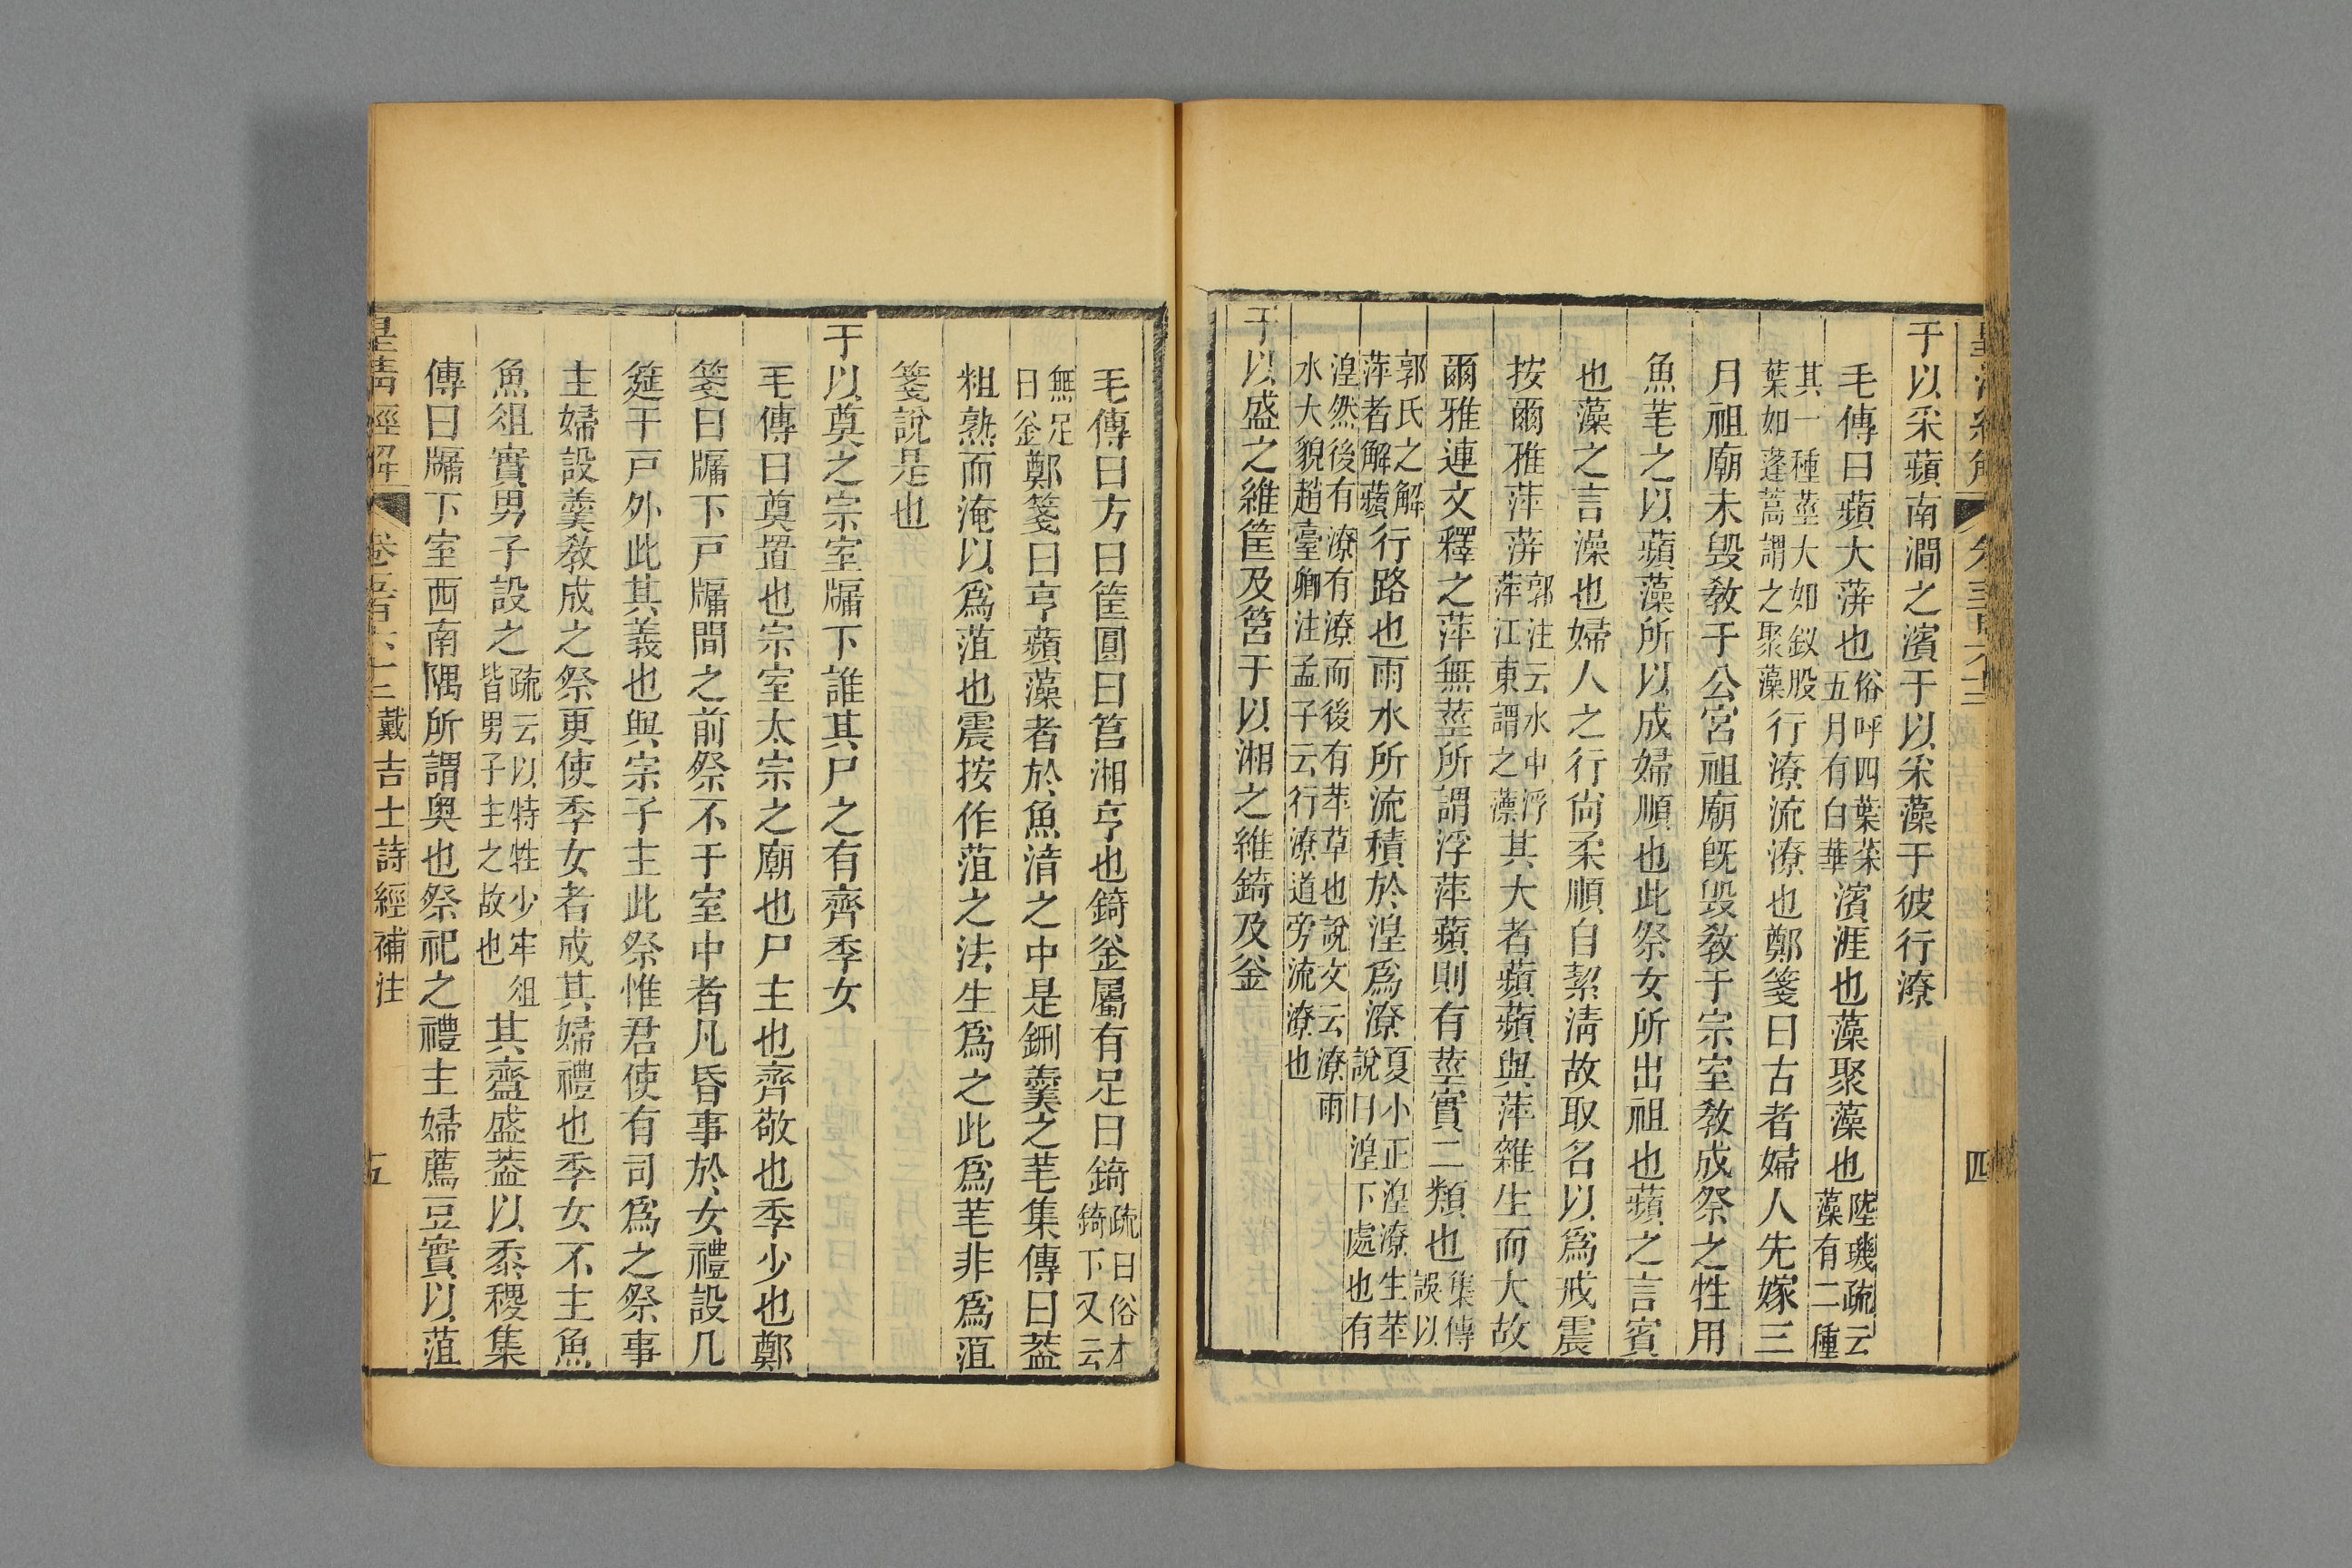 于以采蘋南澗之濱于以采藻于彼行潦
毛傳曰蘋大蓱也俗呼四葉菜五月有白華濱涯也藻聚藻也陸璣疏云藻有二種
其一種莖大如釵股葉如蓬蒿謂之聚藻行潦流潦也鄭箋曰古者婦人先嫁三
月祖廟未毀敎于公宮祖廟旣毀敎于宗室敎成祭之牲用
魚芼之以蘋藻所以成婦順也此祭女所出祖也蘋之言賓
也藻之言澡也婦人之行尙柔順自絜淸故取名以爲戒震
按爾雅萍蓱郭注云水中浮萍江東謂之薸其大者蘋蘋與萍雜生而大故
爾雅連文釋之萍無莖所謂浮萍蘋則有莖實二類也集傳誤以
郭氏之解萍者解蘋行路也雨水所流積於湟爲潦夏小正湟潦生苹說曰湟下處也有
湟然後有潦有潦而後有苹草也說文云潦雨水大貌趙臺卿注孟子云行潦道旁流潦也
于以盛之維筐及筥于以湘之維錡及釜
四
毛傳曰方曰筐圓曰筥湘亨也錡釜屬有足曰錡疏曰俗本錡下又云
無足曰釜鄭箋曰亨蘋藻者於魚湆之中是鉶羹之芼集傳曰葢
粗熟而淹以爲菹也震按作菹之法生爲之此爲芼非爲菹
箋說是也
于以奠之宗室牖下誰其尸之有齊季女
毛傳曰奠置也宗室太宗之廟也尸主也齊敬也季少也鄭
箋曰牖下戸牖間之前祭不于室中者凡昏事於女禮設几
筵于戸外此其義也與宗子主此祭惟君使有司爲之祭事
主婦設羹敎成之祭更使季女者成其婦禮也季女不主魚
魚俎實男子設之疏云以特牲少牢俎皆男子主之故也其齍盛葢以黍稷集
傳曰牖下室西南隅所謂奧也祭祀之禮主婦薦豆實以菹
皇淸經解
戴吉士詩經補注
五